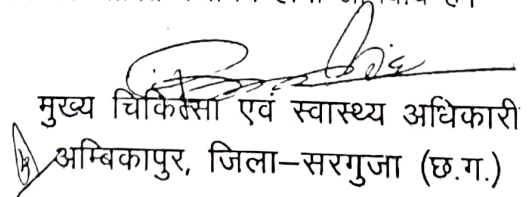 मुख्य चिकित्सा एवं स्वास्थ्य अधिकारी
अम्बिकापुर, जिला–सरगुजा (छ.ग.)